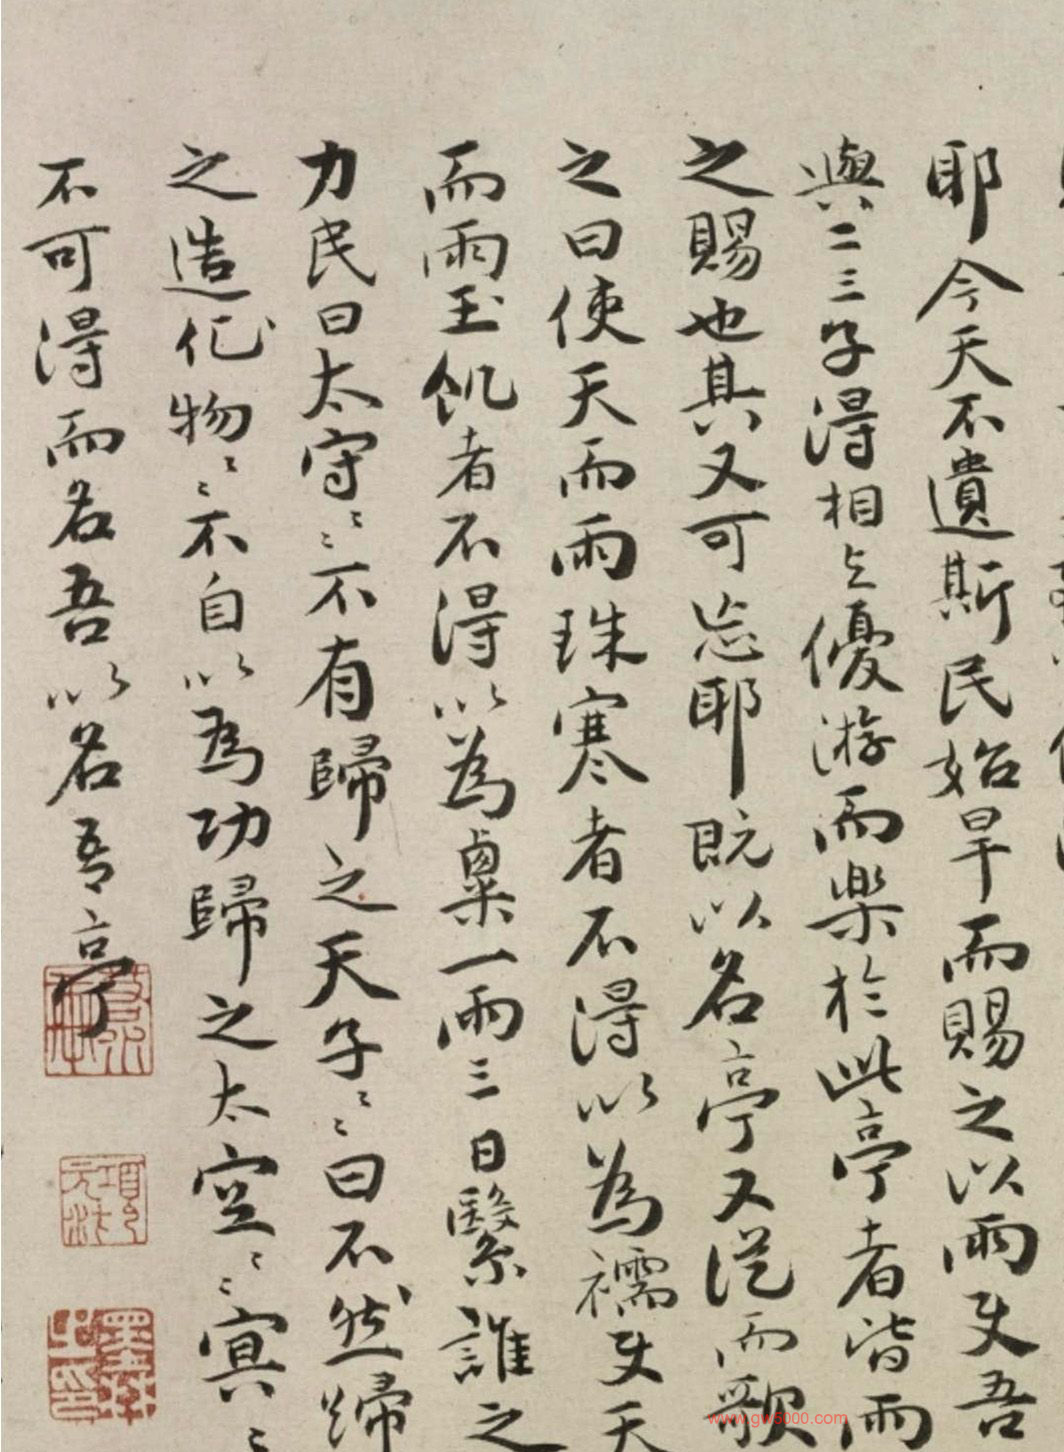 耶今天不遺斯民始旱而賜之以雨使吾
與二三子得相与優游而樂於此亭者皆雨
之賜也其又可忘耶既以名亭又從而歌
之曰使天而雨珠寒者不得以為襦使天
而雨玉飢者不得以為粟一雨三日繄誰之
力民曰太守〻〻不有歸之天子〻〻曰不然歸
之造化物〻〻不自以為功歸之太空〻〻冥〻
不可得而名吾以名吾亭
項元汴印
www.gw5000.com